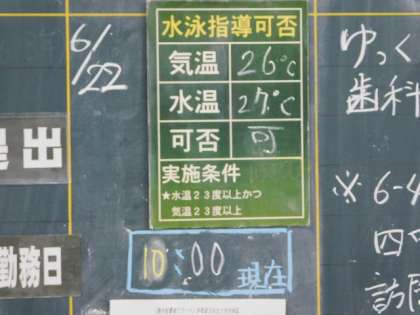 6/22
水泳指導可否
気温 26℃
水温 27℃
可否 可
実施条件
★水温23度以上かつ
気温23度以上
10:00 現在
提出
勤務日
ゆっく
歯科
※6-4
四
訪